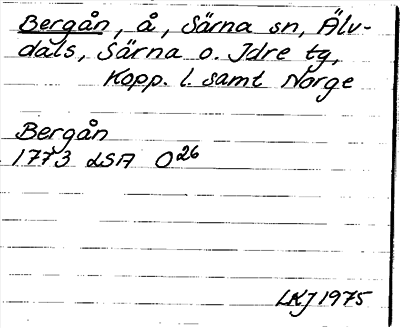 Bergån, å, Särna sn, Älv-
dals, Särna o. Idre tg,
Kopp. l. samt Norge
Bergån
1773 LSA O26
LKJ 1975